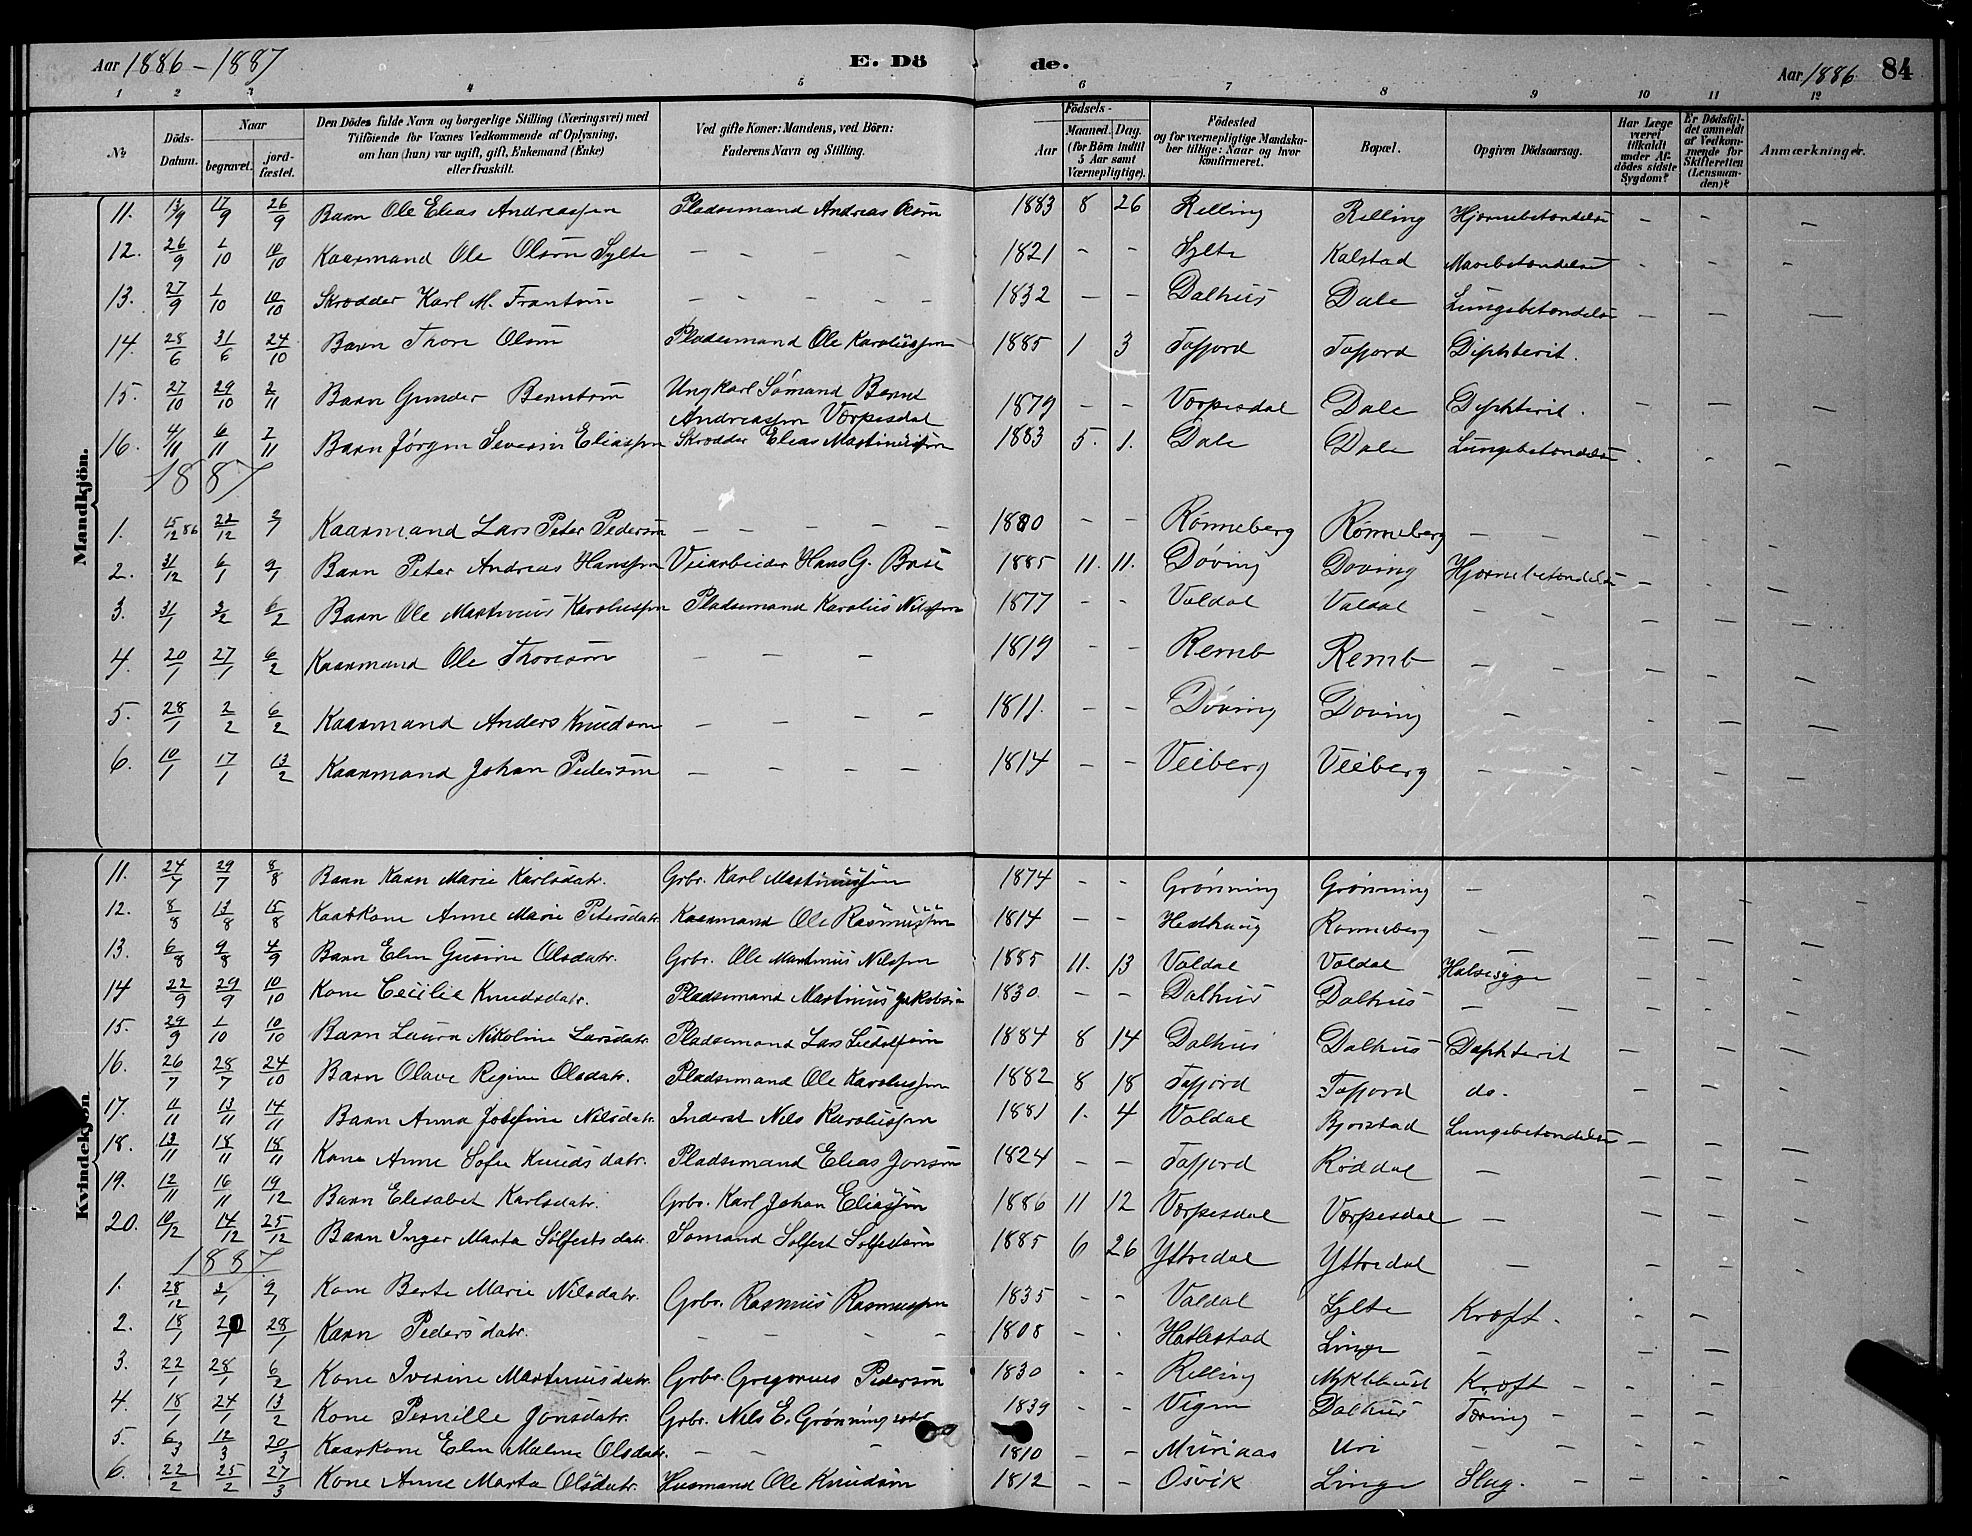 Aar 1886-1887 E. Dö de. Aar 1886 84
1 2 3 4 5 6 7 8 9 10 11 12
№ Döds-Datum. Naar begravet. jord-fæstet. Den Dödes fulde Navn og borgerlige Stilling (Næringsvei) med Tilföiende for Voxnes Vedkommende af Oplysning, om han (hun) var ugift, gift, Enkemand (Enke) eller fraskilt. Ved gifte Koner: Mandens, ved Börn: Faderens Navn og Stilling. Födsels- Aar Maaned. Dag. (for Börn indtil 5 Aar samt Værnepligtige). Födested og for værnepligtige Mandskaber tillige: Naar og hvor konfirmeret. Bopæl. Opgiven Dödsaarsag. Har Læge været tilkaldt under Afdödes sidste Sygdom? Er Dödsfaldet anmeldt af Vedkommende for Skifteretten (Lensmanden)? Anmærkninger.
Mandkjön.
11. 13/9 17/9 26/9 Barn Ole Elias Andreassen Pladsemand Andreas Olsen 1883 8 26 Relling Relling Hjernebetændelse - - -
12. 26/9 1/10 10/10 Kaarmand Ole Olsen Sylte - - - - 1821 - - Sylte Kalstad Mavebetændelse - - -
13. 27/9 1/10 10/10 Skrædder Karl M. Frantsen - - - - - 1832 - - Dalhus Dale Lungebetændelse - - -
14. 28/6 31/6 24/10 Barn Thore Olsen Pladsemand Ole Karolussen 1885 1 3 Tafjord Tafjord Diphterit. - - -
15. 27/10 29/10 2/11 Barn Gunder Berntsen Ungkarl Sömand Bernt Andreassen Værpesdal 1879 - - Værpesdal Dale Diphterit. - - -
16. 4/11 6/11 7/11 Barn Jørgen Severin Eliassen Skrædder Elias Martinussen 1883 5. 1. Dale Dale Lungebetændelse - - -
1887
1. 15/12 86 22/12 2/1 Kaarmand Lars Peter Pedersen - - - - - 1880 - - Rønneberg Rønneberg - - - -
2. 31/12 6/1 9/1 Barn Peter Andreas Hanssen Veiarbeider Hans G. 1885 11. 11. Døving Døving Hjernebetændelse - - -
3. 31/1 3/2 6/2 Barn Ole Martinus Karolussen Pladsemand Karolus Nilssen 1877 - - Valdal Valdal - - - -
4. 20/1 27/1 6/2 Kaarmand Ole Thoresen - - - 1819 - - Remb Remb - - - -
5. 28/1 2/2 6/2 Kaarmand Anders Knudsen - - - - 1811. - - Døving Døving - - - -
6. 10/1 17/1 13/2 Kaarmand Johan Pedersen - - - - 1814 - - Veiberg Veiberg - - - -
Kvindekjön.
11. 24/7 29/7 8/8 Barn Karn Marie Karlsdatr. Grbr. Karl Martinussen 1874 - - Grønning Grønning - - - -
12. 8/8 13/8 15/8 Kaarkone Anne Marie Petersdatr. Kaarmand Ole Rasmussen 1814 - - Rønneberg - - - -
13. 6/8 9/8 4/9 Barn Elen Gusine Olsdatr. Grbr. Ole Martinus Nilssen 1885 11. 13 Valdal Valdal Halssyge - - -
14 22/9 29/9 10/10 Kone Cecilie Knudsdatr. Pladsemand Martinus Jakobsen 1830 - - Dalhus Dalhus - - - -
15. 29/9 1/10 10/10 Barn Laura Nikoline Larsdatr. Pladsemand Lars Ludolfsen 1884 8 14 Dalhus Dalhus Diphterit - - -
16. 26/7 28/7 24/10 Barn Olave Regine Olsdatr. Pladsemand Ole Karolussen 1882 8 18 Tafjord Tafjord do. - - -
17. 11/11 13/11 14/11 Barn Anna Josefine Nilsdatr. Inderst Nils Karolussen 1881 1. 4 Valdal Bjorstad Lungebetændelse - - -
18. 13/11 18/11 18/11 Kone Anne Sofie Knudsdatr. Pladsemand Elias Jonsen 1824 - - Tafjord Røddal - - - -
19. 12/11 16/11 19/12 Barn Elesabet Karlsdatr. Grbr. Karl Johan Eliassen 1886 11 12 Værpesdal Værpesdal - - - -
20. 10/12 14/12 25/12 Barn Inger Marta Sølfestsdatr. Sømand Sølfest Sølfestsen 1885 6 26 Yttredal Yttredal - - - -
1887
1. 28/12 2/1 9/1 Kone Berte Marie Nilsdatr. Grbr. Rasmus Rasmussen 1835 - - Valdal Sylte Kræft. - - -
2. 18/1 20/1 28/1 Karn Pedersdatr. - - - - 1808 - - Hatlestad Linge - - - -
3. 22/1 28/1 6/2 Kone Iverine Martinusdatr. Grbr. Gregorius Pedersen 1830 - - Relling Myklebust Kræft - - - -
4. 18/1 24/1 13/2 Kone Pernille Jonsdatr. Grbr. Nils E. Grønningsæter 1839 - - Vigen Dalhus Tæring - - - -
5. 6/3 12/3 20/3 Kaarkone Elen Malene Olsdatr. - - - 1810 - - Muriaas Uri - - - -
6. 22/2 25/2 27/3 Kone Anne Marta Olsdatr. Husmand Ole Knudsen 1812 - - Osvik Linge Slag. - - - -